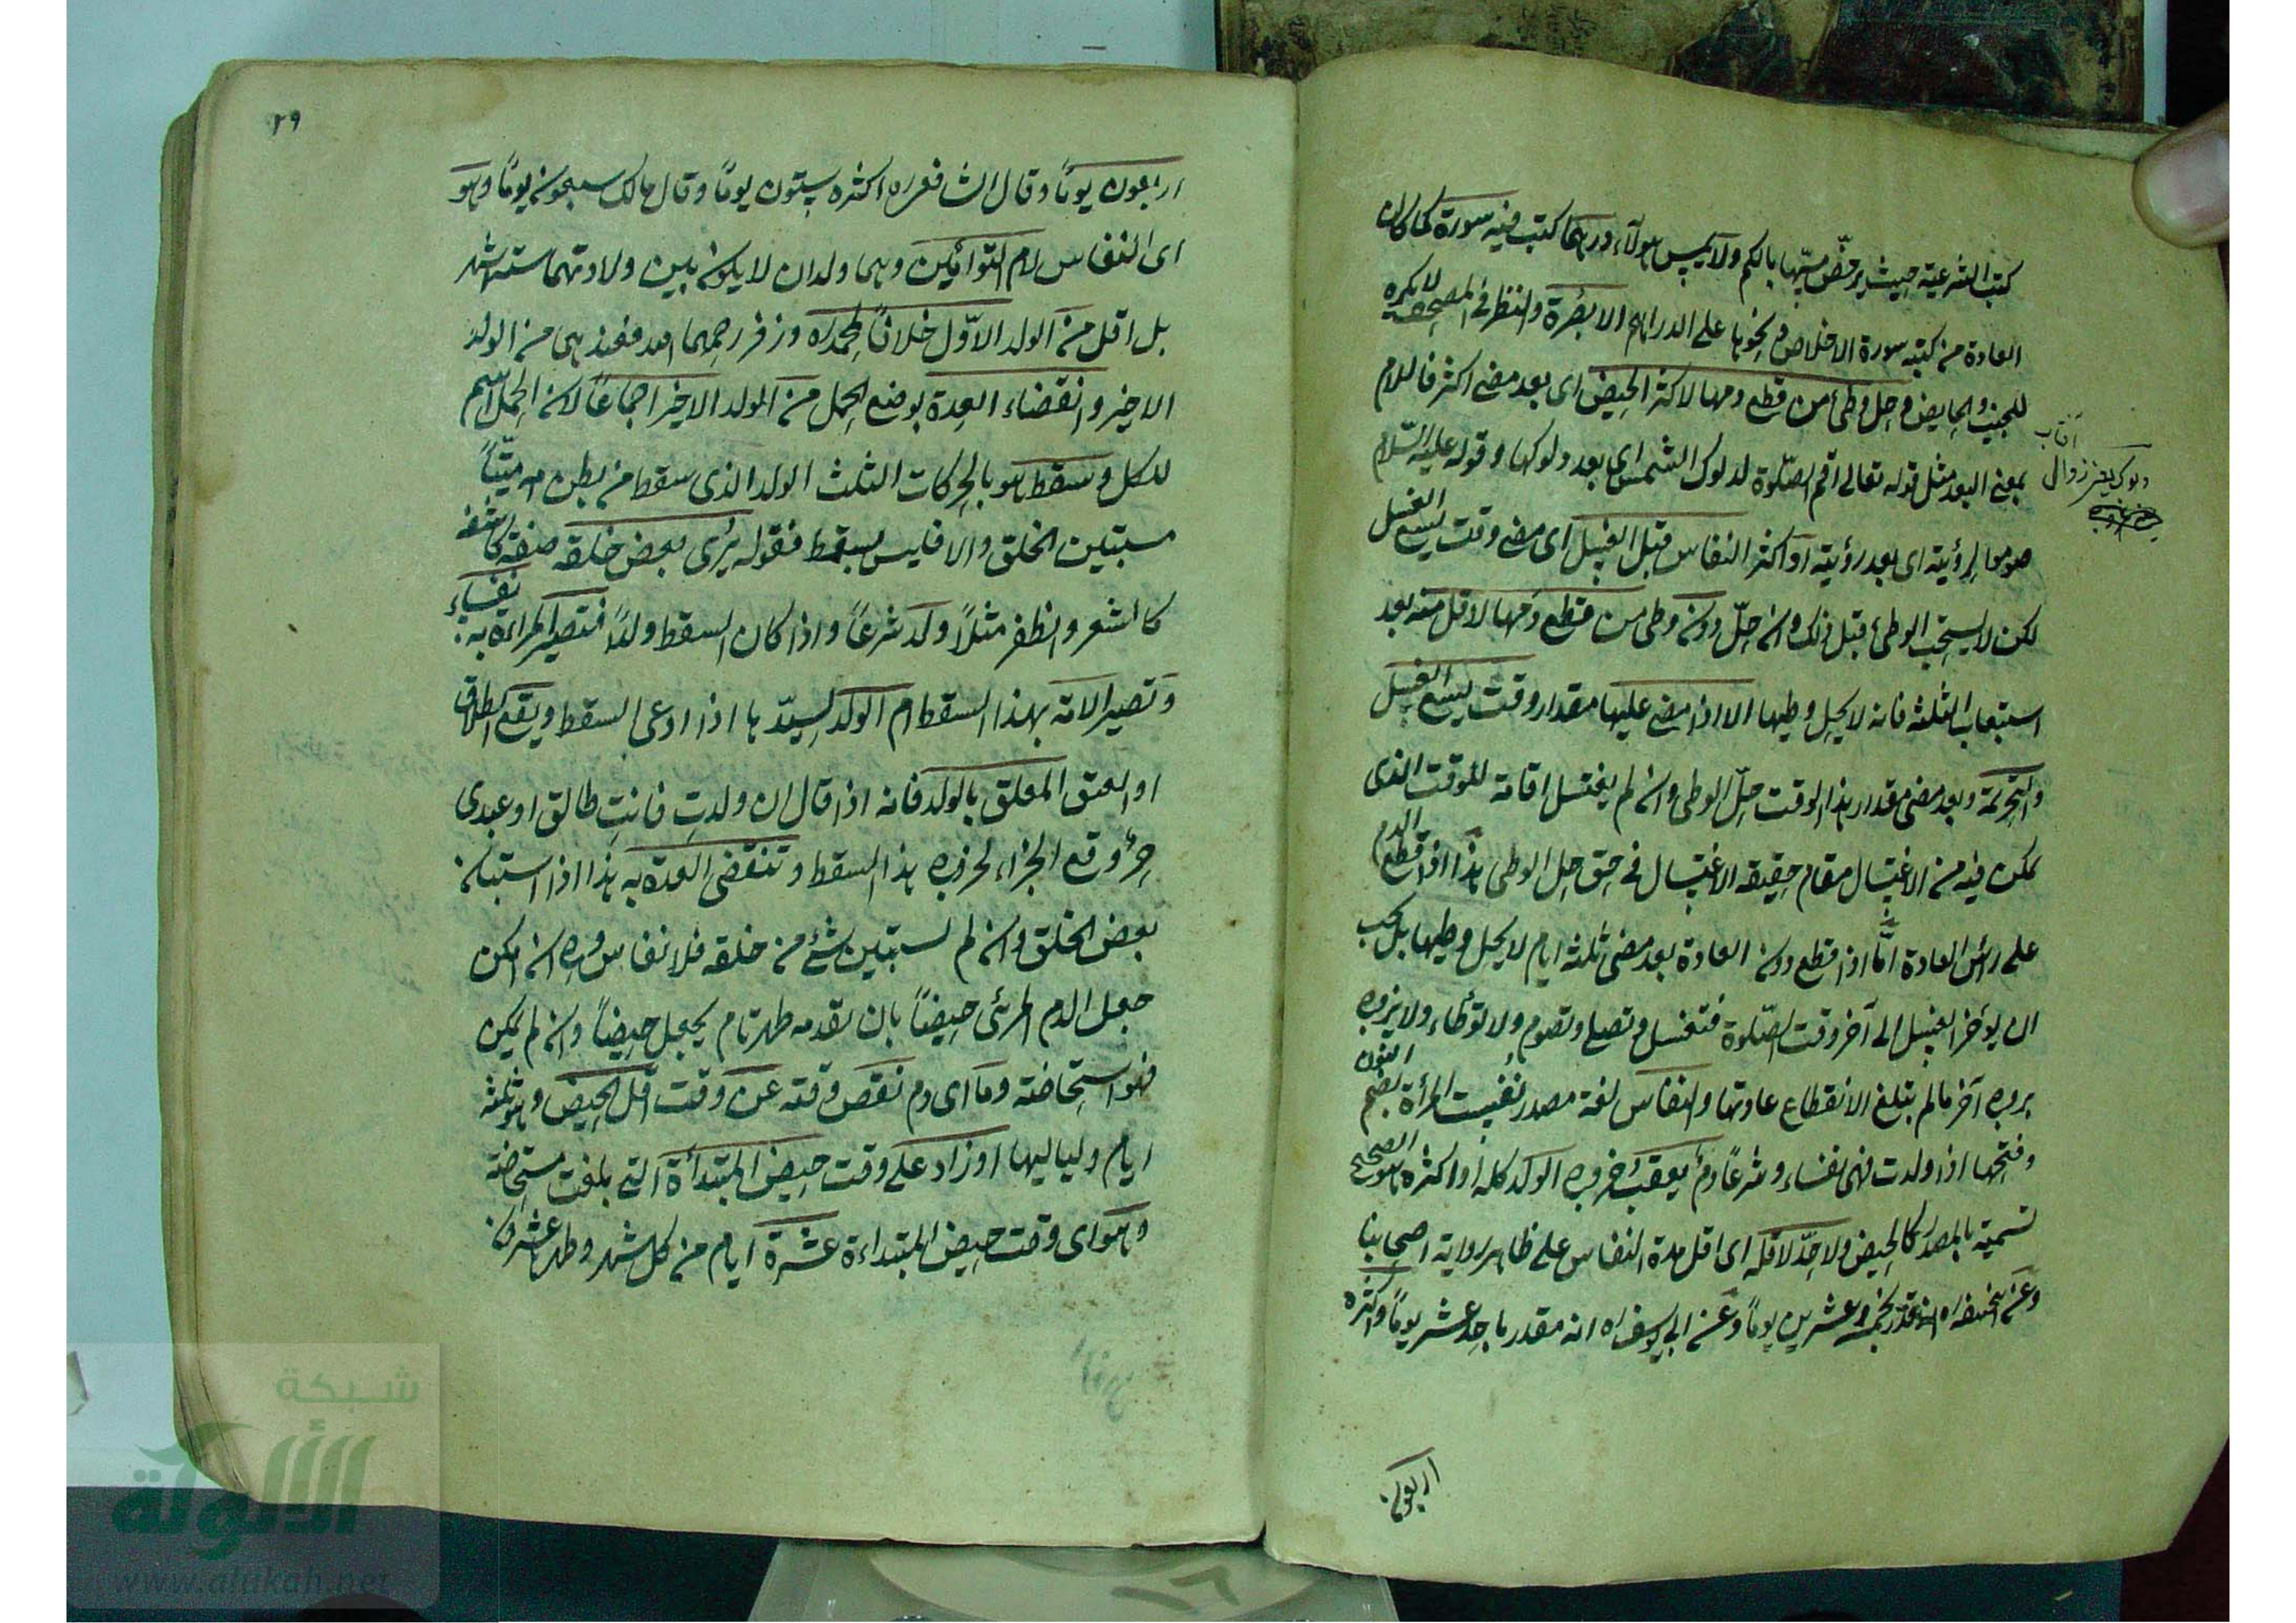 كتب الشرعية حيث يرخص مسها بالكم ولا يمس هؤلاء درهما كتب فيه سورة كما كان
العادة من كتبه سورة الاخلاص ونحوها على الدراهم الا بصرة والنظر فى المصحف لا يكره
للجنب والحايض وحل وطئ من قطع دمها لاكثر الحيض اى بعد مضى اكثر فاللام
بمعنى البعد مثل قوله تعالى اقم الصلوة لدلوك الشمس اى بعد دلوكها وقوله عليه السلام
صوموا لرؤيته اى بعد رؤيته او اكثر النفاس قبل الغسل اى مضى وقت يسع الغسل
لكن لا يستحب الوطئ قبل ذلك وان حل دون وطى من قطع دمها لاقل منه بعد
استيعاب الثلثة فانه لا يحل وطيها الا اذا مضى عليها مقدار وقت يسع الغسل
والتحريمة وبعد مضى مقدار هذا الوقت حل الوطى وان لم يغتسل اقامة للوقت الذى
يمكن فيه من الاغتسال مقام حقيقة الاغتسال فى حق حل الوطى هذا اذا قطع الدم
على رأس العادة اما اذا قطع دون العادة بعد مضى ثلثة ايام لا يحل وطيها بل يجب
ان يؤخر الغسل الى آخر وقت الصلوة فتغسل وتصلى وتصوم ولا توطاء ولا يتزوج
بزوج آخر مالم يتلغ الانقطاع عادتها والنفاس لغة مصدر نفست المرأة بضم النون
وفتحها اذا ولدت فهى نفساء وشرعا دم يعقب خروج الولد كله او اكثره هو الصحيح
تسمية بالمصدر كالحيض ولا حد لاقله اى اقل مدة النفاس على ظاهر رواية اصحابنا
وعن ابيحنيفه ره مقدر بخمسة وعشرين يوما وعن ابى يوسف ره انه مقدر باحد عشر يوما واكثره
اربعون
آفتاب
دلوك يعنى زوال
٢٩
اربعون يوما وقال الشافعى ره اكثره ستون يوما وقال مالك سبعون يوما وهو
اى النفاس لام التوأمين وهما ولدان لا يكون بين ولادتهما ستة اشهر
بل اقل من الولد الاول خلافا لمحمد ره وزفر رحمهما الله فعندهما من الولد
الاخير وانقضاء العدة بوضع الحمل من الولد الاخير اجماعا لان الحمل اسم
للكل وسقط هو بالحركات الثلث الولد الذى سقط من بطن امه ميتا
مستبين الخلق والا فليس بسقط فقوله يرى بعض خلقه صفة كاشفة
كالشعر والظفر مثلا ولد شرعا واذا كان السقط ولدا فتصير المراة به نفساء
وتصير الامة بهذا السقط ام الولد لسيدها اذا ادعى السقط ويقع الطلاق
او العتق المعلق بالولد فانه اذا قال ان ولدت فانت طالق او عبدى
حر وقع الجزاء لخروج هذا السقط وتنقضى العدة به هذا اذا استبان
بعض الخلق وان لم تستبين شئ من خلقه فلا نفاس وهو ان امكن
جعل الدم المرئى حيضا بان تقدمه طهر تام يجعل حيضا وان لم يمكن
فهو استحاضة وما اى دم نقص وقته عن وقت اقل الحيض وهو ثلثة
ايام ولياليها او زاد على وقت حيض المبتدأة التى بلغت مستحاضة
وهو اى وقت حيض المبتداءة عشرة ايام من كل شهر وطهرها عشرون
شبكة
الألوكة
www.alukah.net